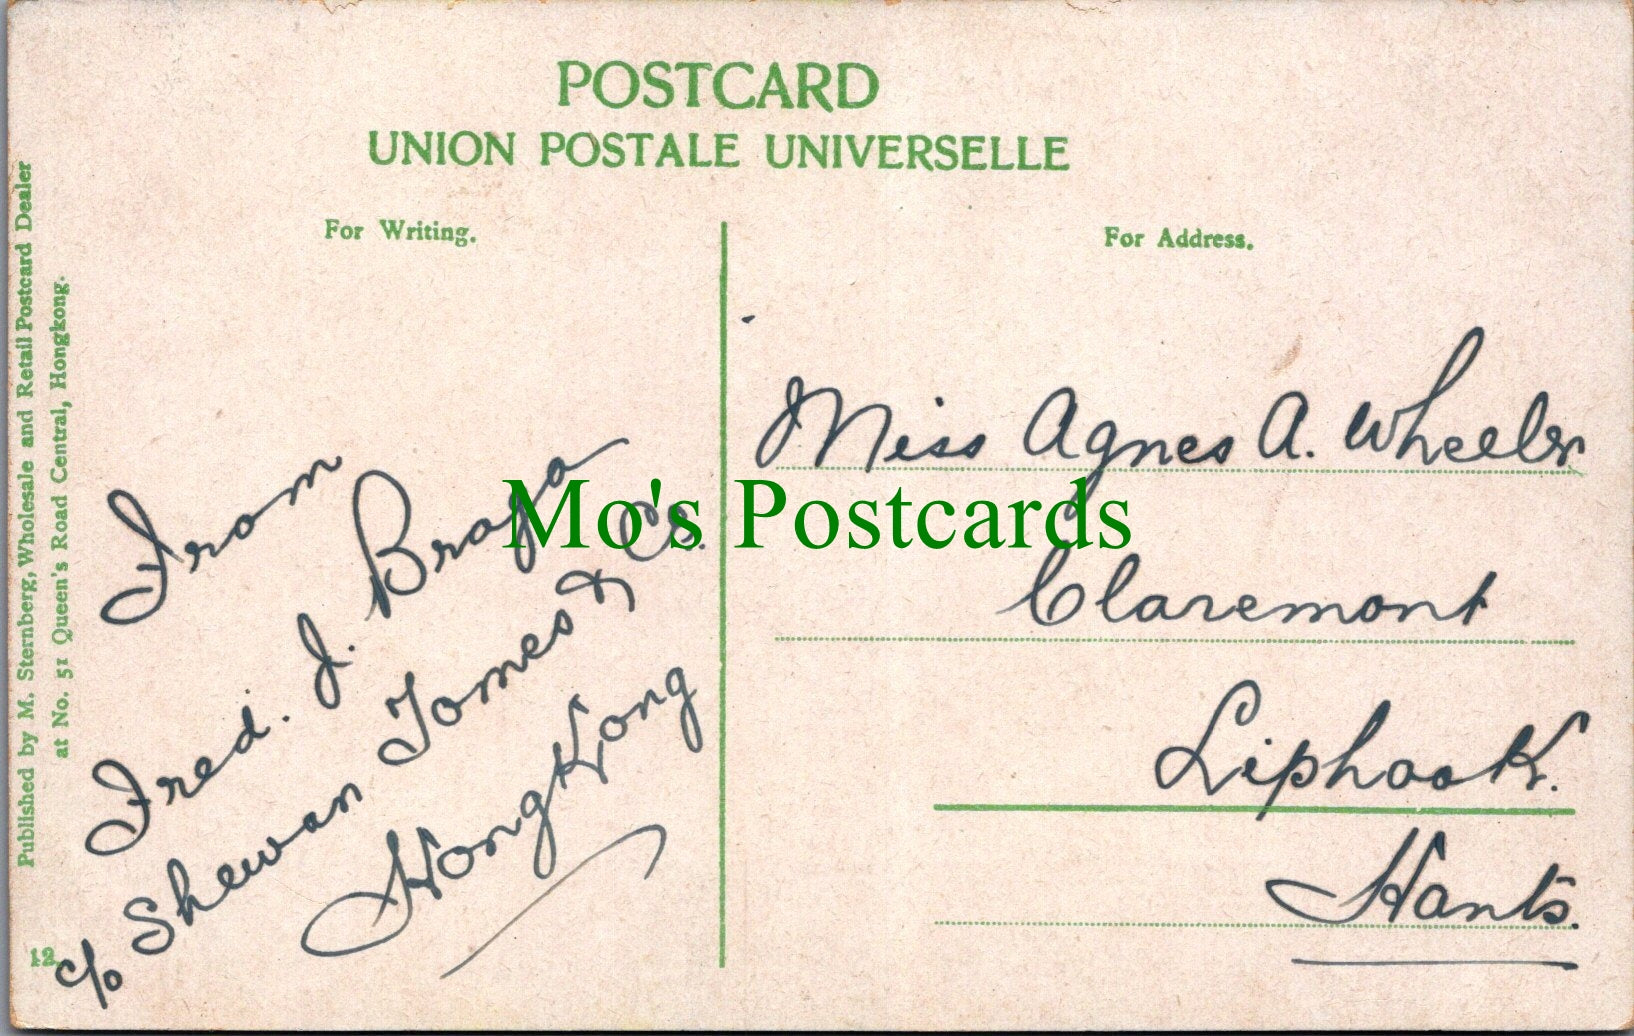 POSTCARD
UNION POSTALE UNIVERSELLE
For Writing.
For Address.
Published by M. Sternberg, Wholesale and Retail Postcard Dealer
at No. 51 Queen's Road Central, Hongkong.
12.
From
Fred. J. Braga
c/o Shewan Tomes & Co.
HongKong
Miss Agnes A. Wheeler
Claremont
Liphook.
Hants.
Mo's Postcards